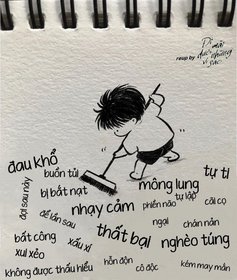 Đi dưới
những
vì sao
reup by
đau khổ
buồn tủi
bị bắt nạt
đợi sau này
để lần sau
nhạy cảm
mông lung
tự ti
phiền não
tự lập
cãi cọ
bất công
xấu xí
thất bại
ngại
chán nản
nghèo túng
xui xẻo
hỗn độn
cô độc
kém may mắn
không được thấu hiểu